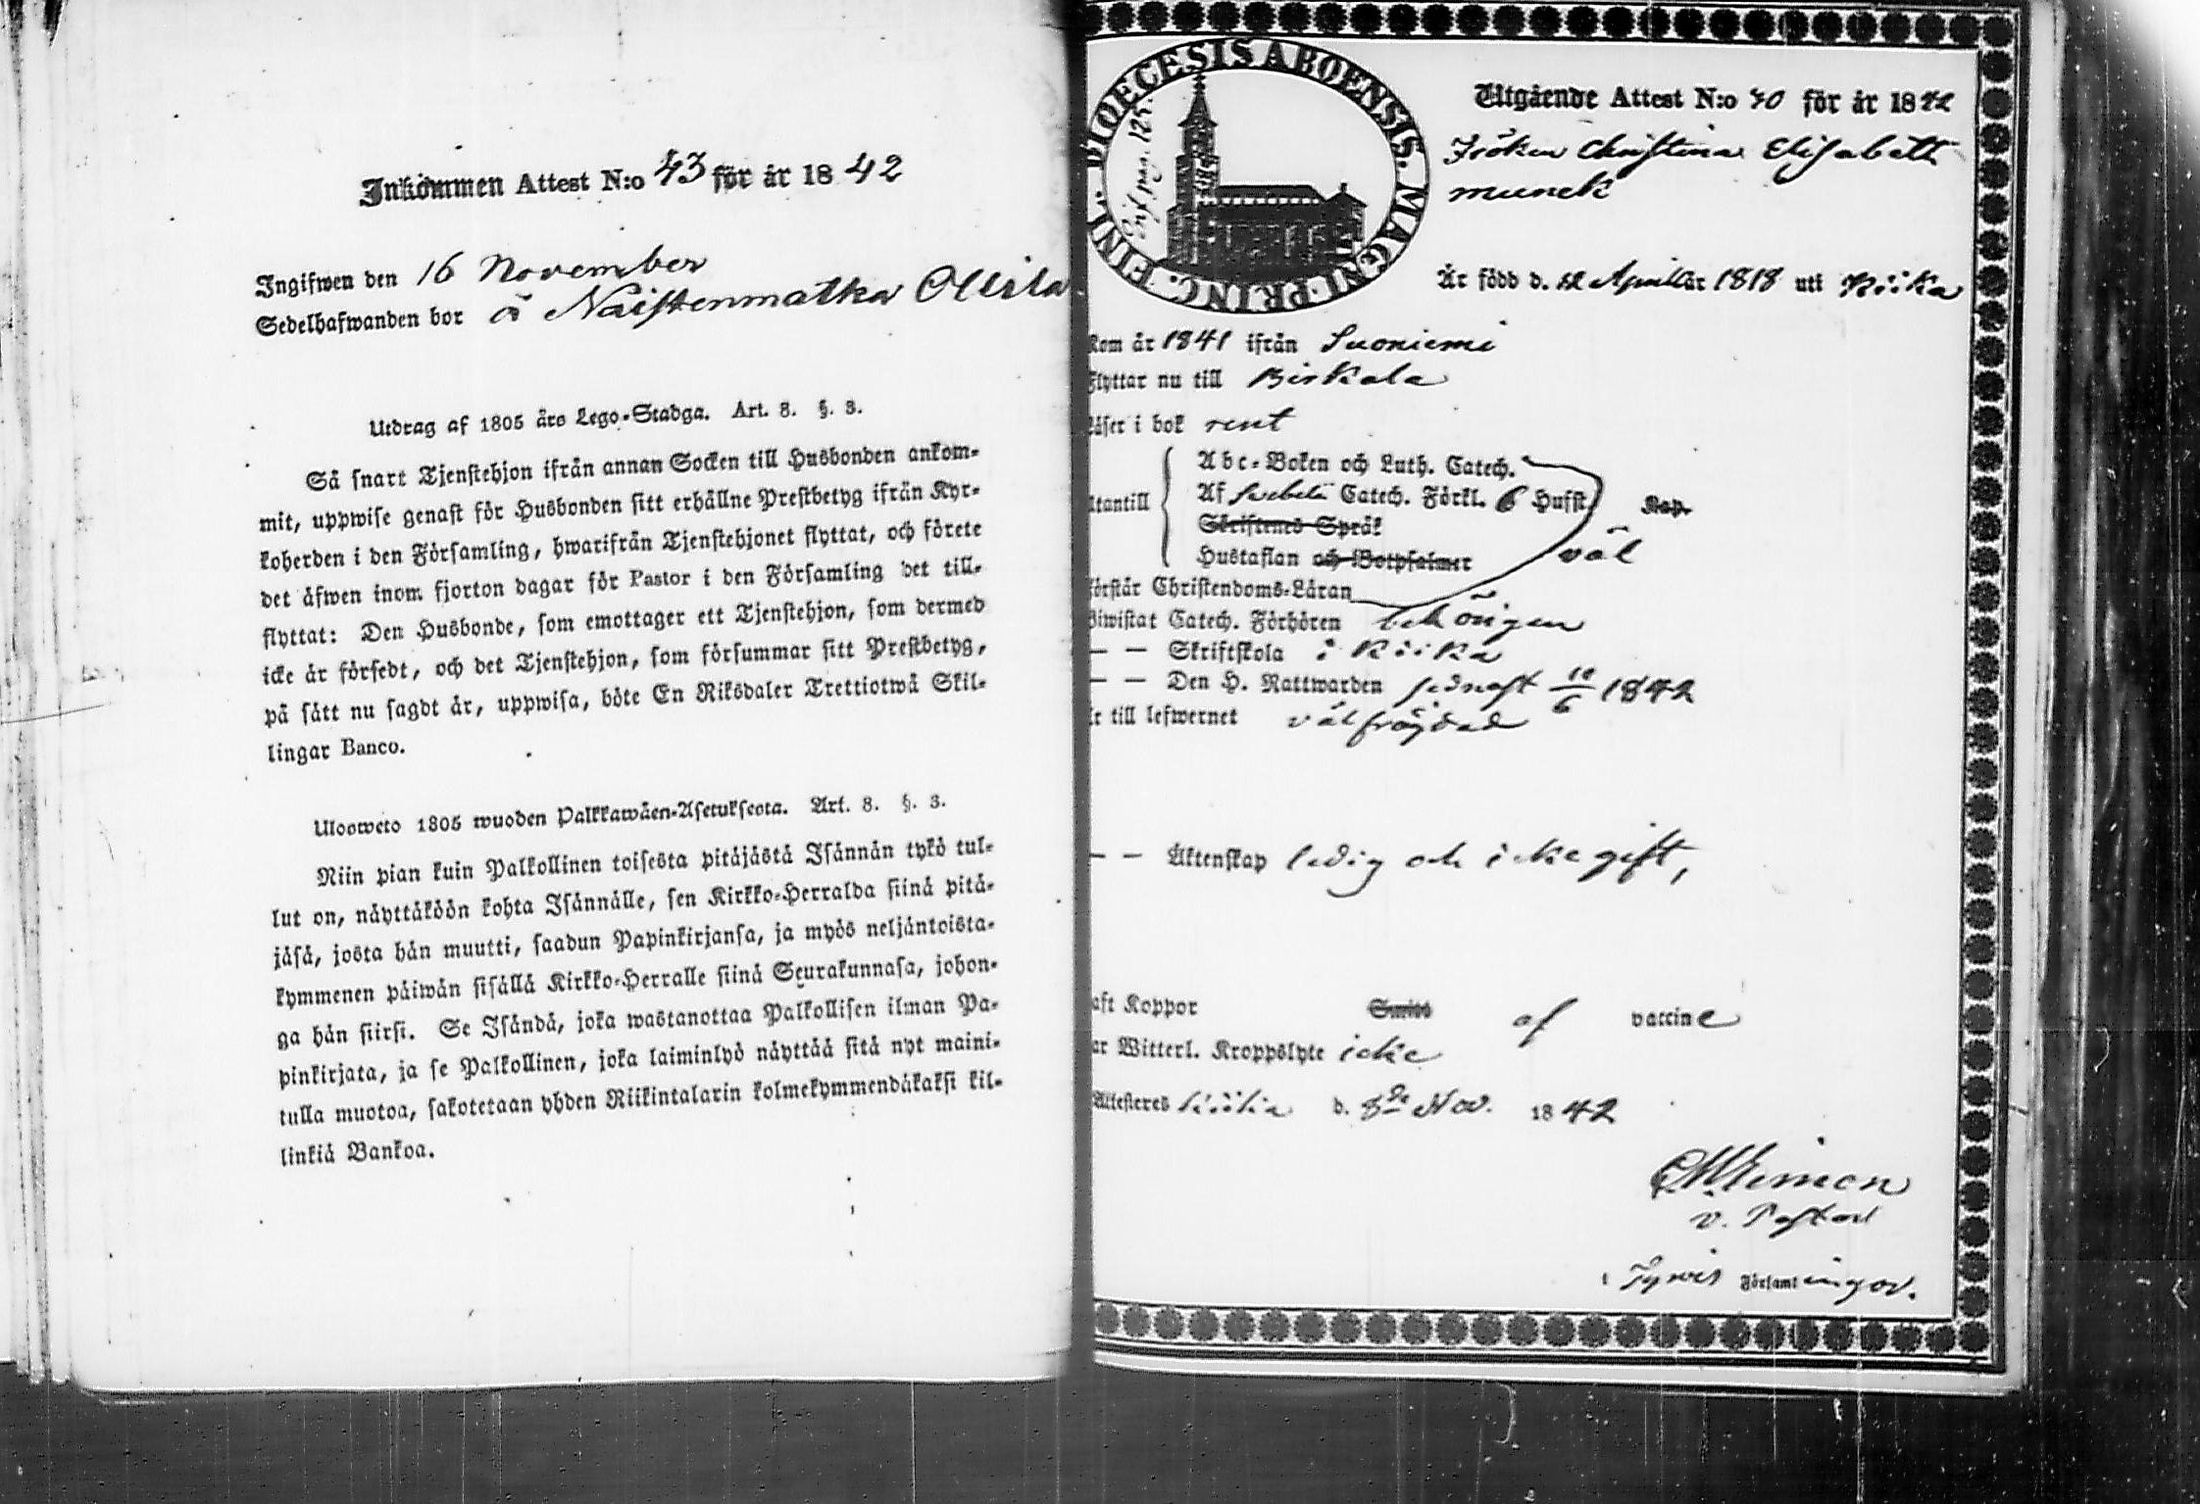 Inkommen Attest N:o 43 för år 1842
Ingifwen den 16 November
Sedelhafwanden bor å Naistenmatka Ollila
Utdrag af 1805 års Lego-Stadga. Art. 8. §. 3.
Så snart Tjenstehjon ifrån annan Socken till Husbonden ankom-
mit, uppwise genast för Husbonden sitt erhållne Prestbetyg ifrån Kyr-
koherden i den Församling, hwarifrån Tjenstehjonet flyttat, och förete
det äfwen inom fjorton dagar för Pastor i den Församling det till-
flyttat: Den Husbonde, som emottager ett Tjenstehjon, som dermed
icke är försedt, och det Tjenstehjon, som försummar sitt Prestbetyg,
på sätt nu sagdt är, uppwisa, böte En Riksdaler Trettiotwå Skil-
lingar Banco.
Ulosweto 1805 wuoden Palkkawäen-Asetuksesta. Art. 8. §. 3.
Niin pian kuin Palkollinen toisesta pitäjästä Isännän tykö tul-
lut on, näyttäköön kohta Isännälle, sen Kirkko-Herralda siinä pitä-
jäsä, josta hän muutti, saadun Papinkirjansa, ja myös neljäntoista-
kymmenen päiwän sisällä Kirkko-Herralle siinä Seurakunnasa, johon-
ga hän siirsi. Se Isändä, joka wastanottaa Palkollisen ilman Pa-
pinkirjata, ja se Palkollinen, joka laiminlyö näyttää sitä nyt maini-
tulla muotoa, sakotetaan yhden Riikintalarin kolmekymmendäkaksi kil-
linkiä Bankoa.
DIOECESIS ABOENSIS. MAGNI PRINC. FINL.
pag. 125.
Utgående Attest N:o 40 för år 1842
Fröken Christina Elisabeth
Munck
Är född d. Aprill år 1818 uti Kiika
Kom år 1841 ifrån Suoniemi
Flyttar nu till Birkala
Läser i bok rent
Abc-Boken och Luth. Catech.
Utantill Af Svebelii Catech. Förkl. 6 Hufst. Kap.
Skriftenes Språk
Hustaflan och Botpsalmer väl
Förstår Christendoms-Läran
Biwistat Catech. Förhören behörigen
— — Skriftskola i Kiika
— — Den H. Nattwarden sednast 10/6 1842
Är till lefwernet välfrägdad
— — Äktenskap ledig och icke gift,
Haft Koppor Smitt af vaccine
Har Witterl. Kroppslyte icke
Attesteres Kiikia d. 8de Nov. 1842
v. Pastor
i Tyrvis Församlingar.